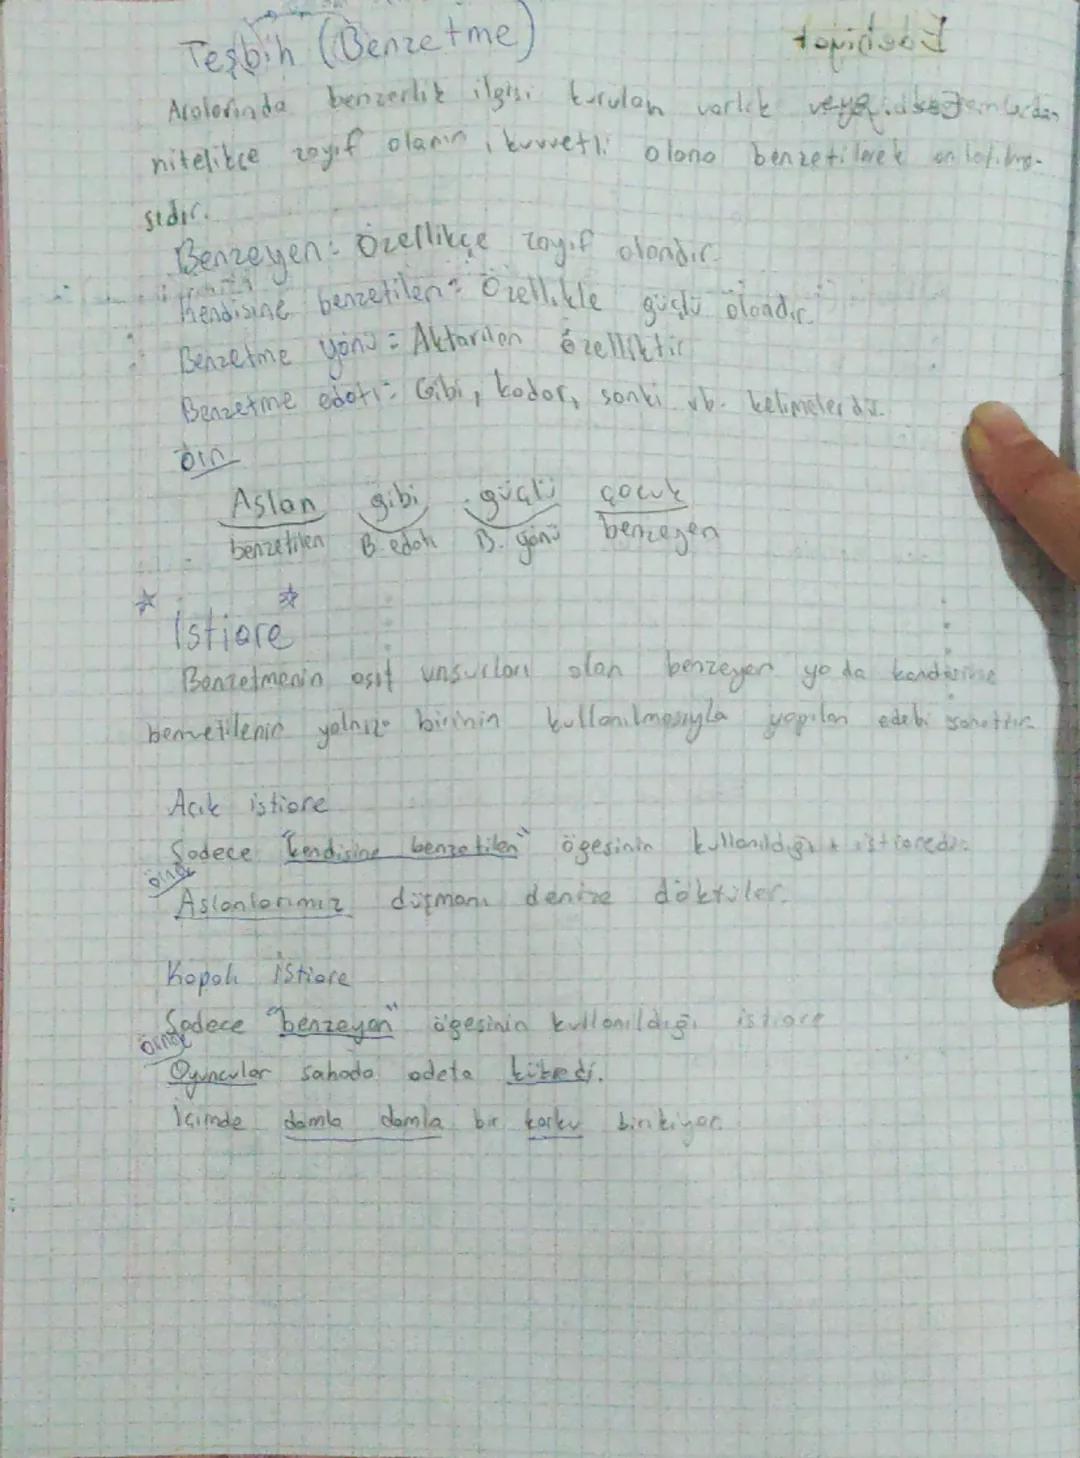 Teşbih (Benzetme)
Aralarında benzerlik ilgisi kurulan varlık veya
nitelikçe zayıf olanın, kuvvetli olana benzetilerek anlatılma-
sıdır.
Benzeyen: Özellikçe zayıf olandır.
Kendisine benzetilen: Özellikle güçlü oloadır.
Benzetme yönü: Aktarılan özelliktir
Benzetme edatı: Gibi, kadar, sanki vb. kelimelerdir.
örn
Aslan gibi güçlü çocuk
benzetilen B. edatı B. yönü benzeyen
İstiare
Benzetmenin asıt unsurları olan benzeyen ya da kendisine
benzetilenin yalnızca birinin kullanılmasıyla yapılan edebi sanattır.
Açık istiare
Sadece "kendisine benzetilen" ögesinin kullanıldığı istiaredir.
örnek
Aslanlarımız düşmanı denize döktüler.
Kapalı istiare
Sadece "benzeyen" ögesinin kullanıldığı istiare
örnek
Oyuncular sahada adeta kükredi.
İçimde damla damla bir korku birikiyor.
Edebiyat